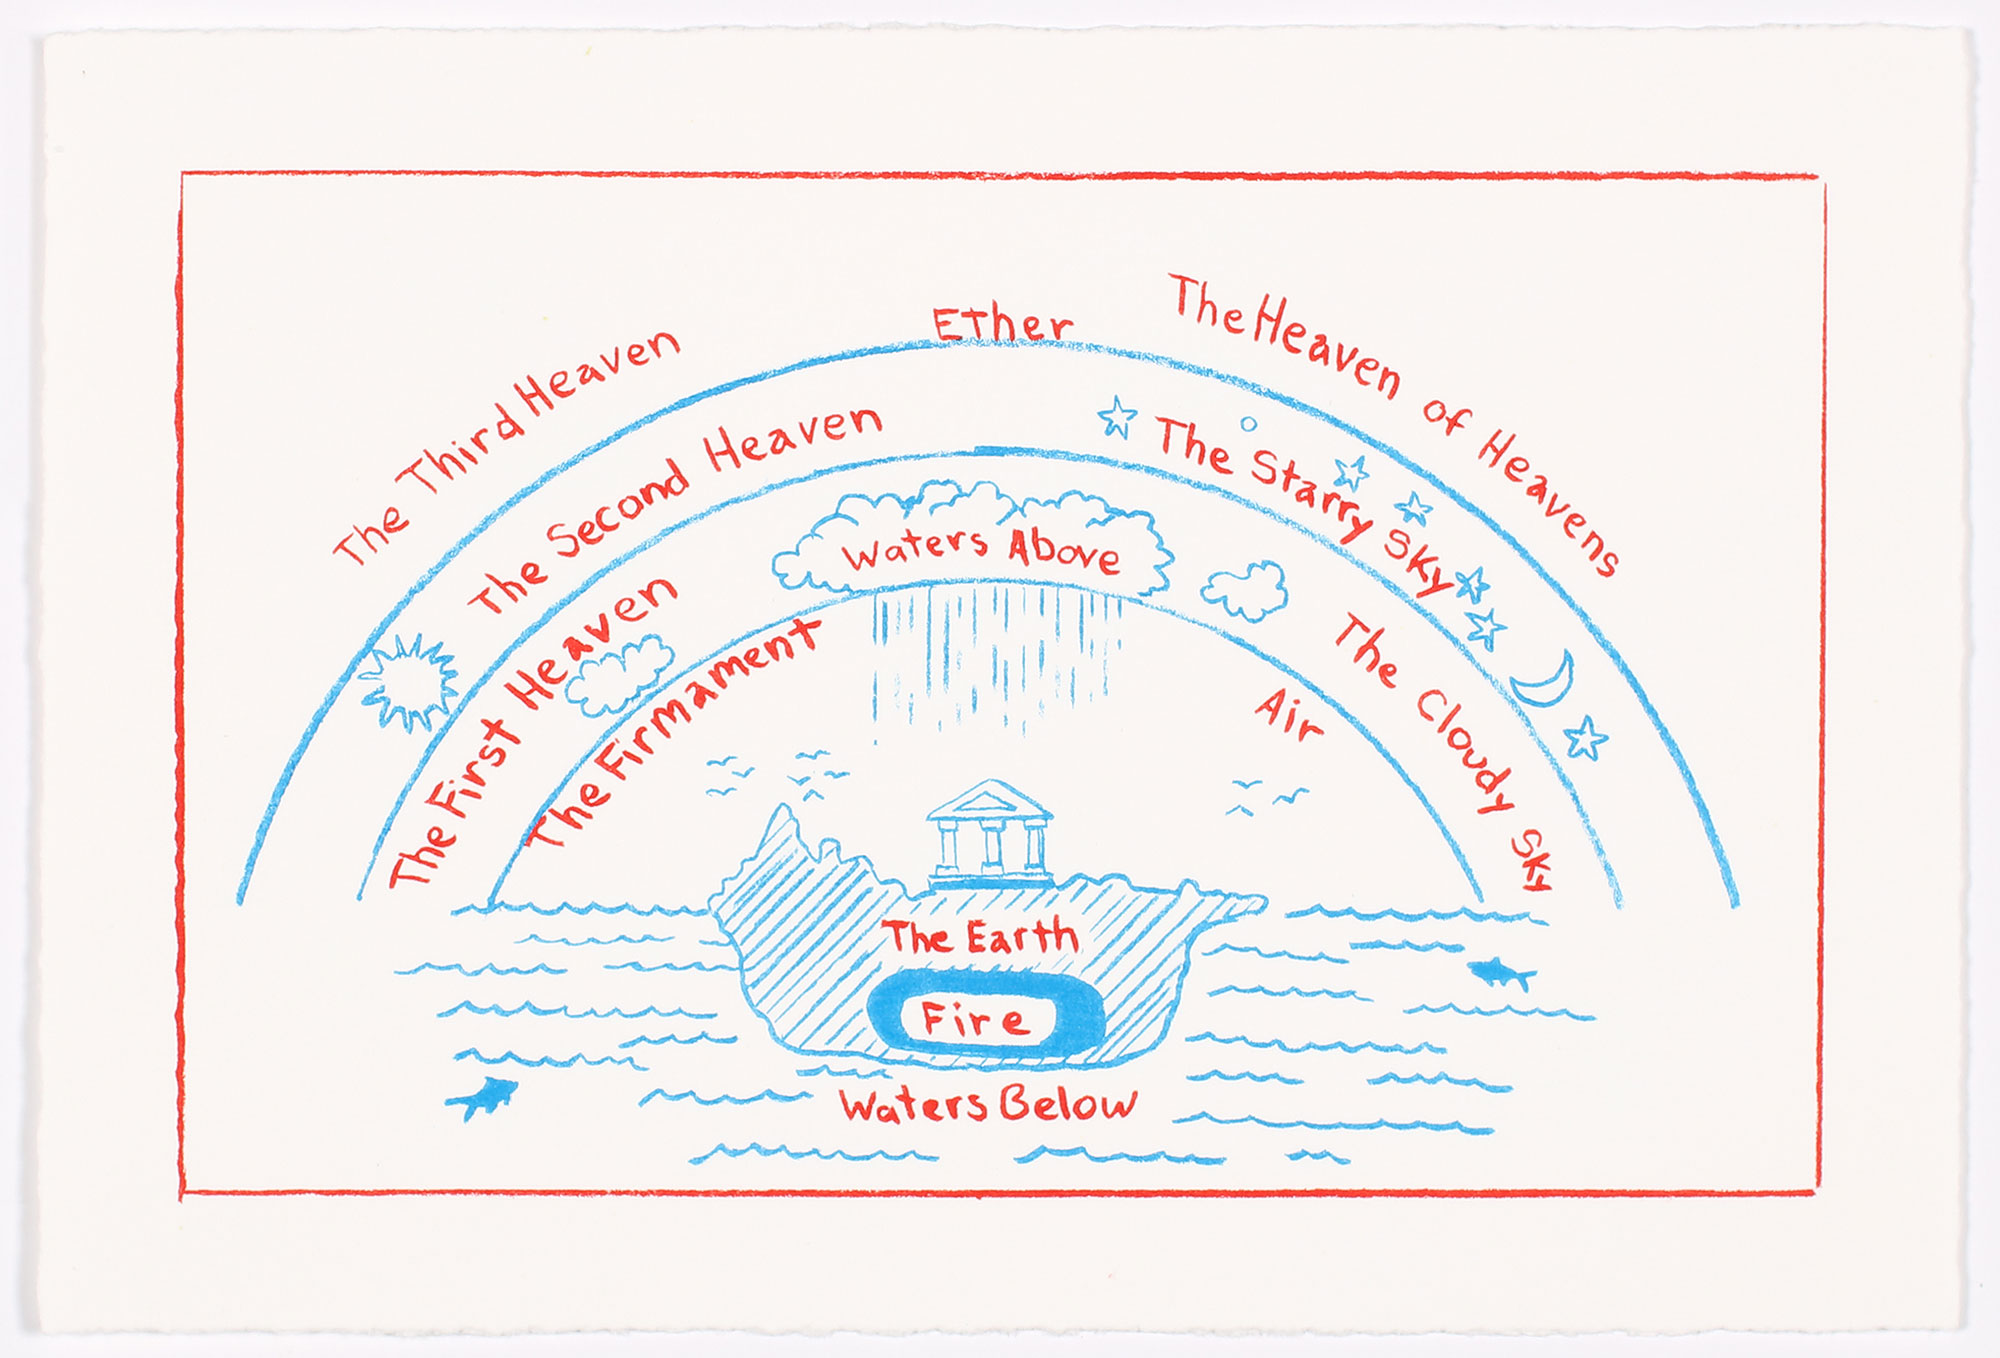 Ether
The Third Heaven
The Heaven of Heavens
The Second Heaven
The Starry Sky
The First Heaven
Waters Above
The Cloudy Sky
The Firmament
Air
The Earth
Fire
Waters Below